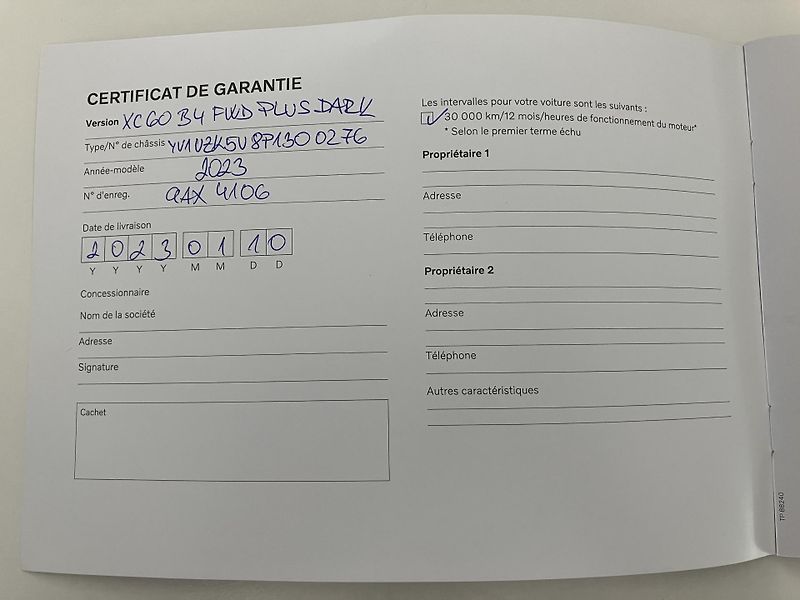 CERTIFICAT DE GARANTIE
Version XC60 B4 FWD PLUS DARK
Type/N° de châssis YV1UZK5V8P1300276
Année-modèle 2023
N° d'enreg. QAX 4106
Date de livraison
2 0 2 3 0 1 1 0
Y Y Y Y M M D D
Concessionnaire
Nom de la société
Adresse
Signature
Cachet
Les intervalles pour votre voiture sont les suivants :
30 000 km/12 mois/heures de fonctionnement du moteur*
* Selon le premier terme échu
Propriétaire 1
Adresse
Téléphone
Propriétaire 2
Adresse
Téléphone
Autres caractéristiques
TP 88240